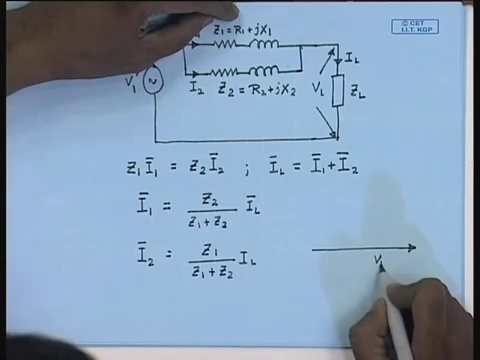 © CET
I.I.T. KGP
Z₁ = R₁ + jX₁
I_L
V₁
I₂
Z₂ = R₂ + jX₂
V_L
Z_L
Z₁ Ī₁ = Z₂ Ī₂ ; Ī_L = Ī₁ + Ī₂
Ī₁ = Z₂ / (Z₁ + Z₂) Ī_L
Ī₂ = Z₁ / (Z₁ + Z₂) I_L
V